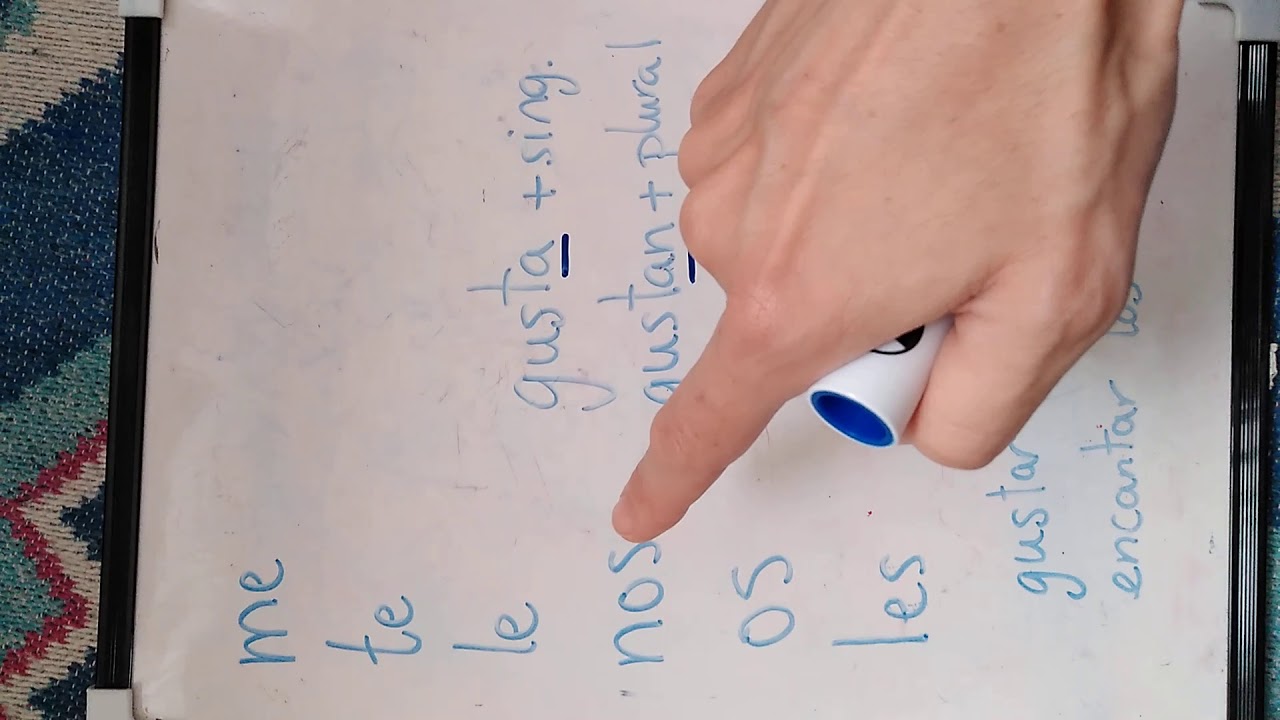 me
te
le gusta + sing.
nos gustan + plural
os
les
gustar
encantar